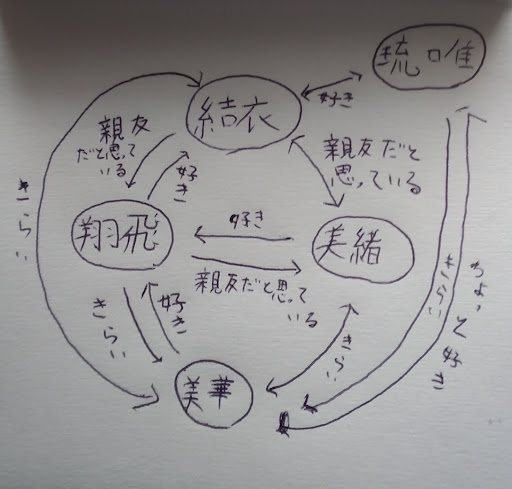 琉唯
好き
結衣
親友
だと思って
いる
好き
親友だと
思っている
きらい
翔飛
好き
美緒
親友だと思って
いる
きらい
好き
きらい
きらい
ちょっと好き
美華